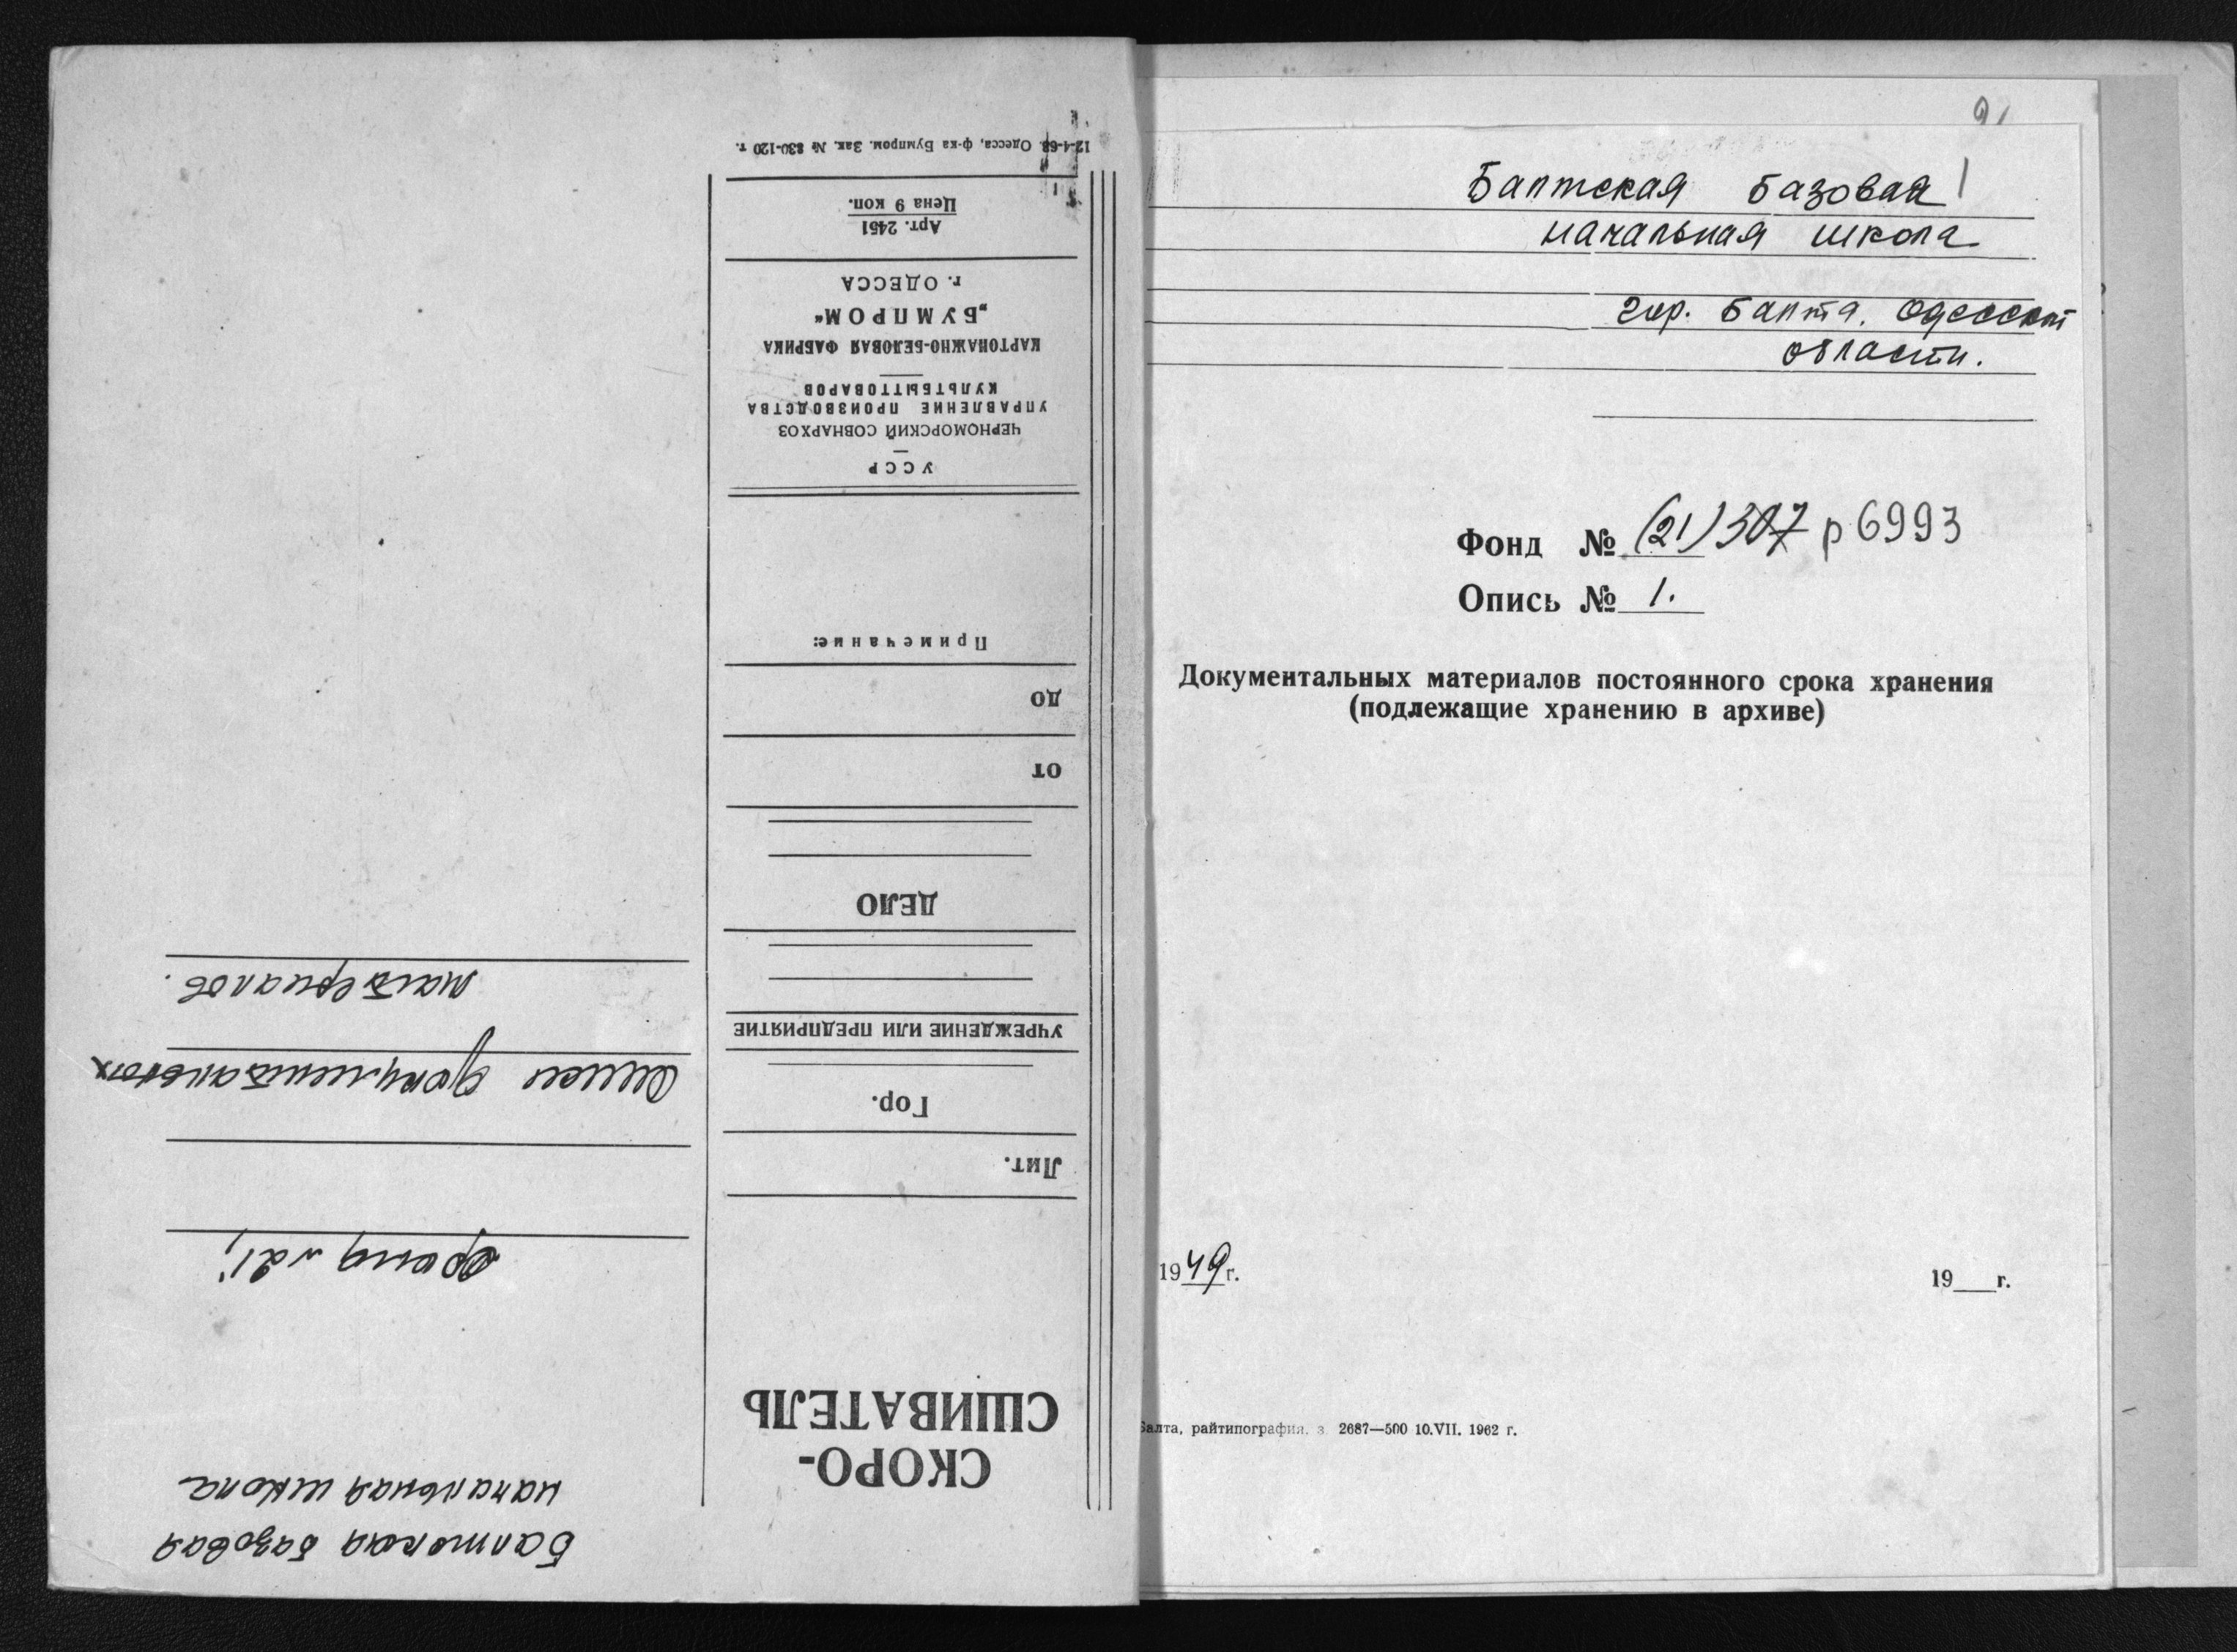 Балтская базовая
начальная школа
Фонд №21,
Описи документальных
материалов.
СКОРО-
СШИВАТЕЛЬ
Лит.
Гор.
УЧРЕЖДЕНИЕ ИЛИ ПРЕДПРИЯТИЕ
ДЕЛО
ОТ
ДО
Примечание:
УССР
ЧЕРНОМОРСКИЙ СОВНАРХОЗ
УПРАВЛЕНИЕ ПРОИЗВОДСТВА
КУЛЬТБЫТТОВАРОВ
КАРТОНАЖНО-БЕЛОВАЯ ФАБРИКА
„БУМПРОМ“
г. ОДЕССА
Арт. 2451
Цена 9 коп.
Одесса, ф-ка Бумпром. Зак. № 830-120 т.
Балтская базовая
начальная школа
гор. Балта, Одесской
области.
Фонд № (21) 307 р 6993
Опись № 1.
Документальных материалов постоянного срока хранения
(подлежащие хранению в архиве)
1949 г. 19 г.
Балта, райтипография. з. 2687—500 10.VII. 1962 г.